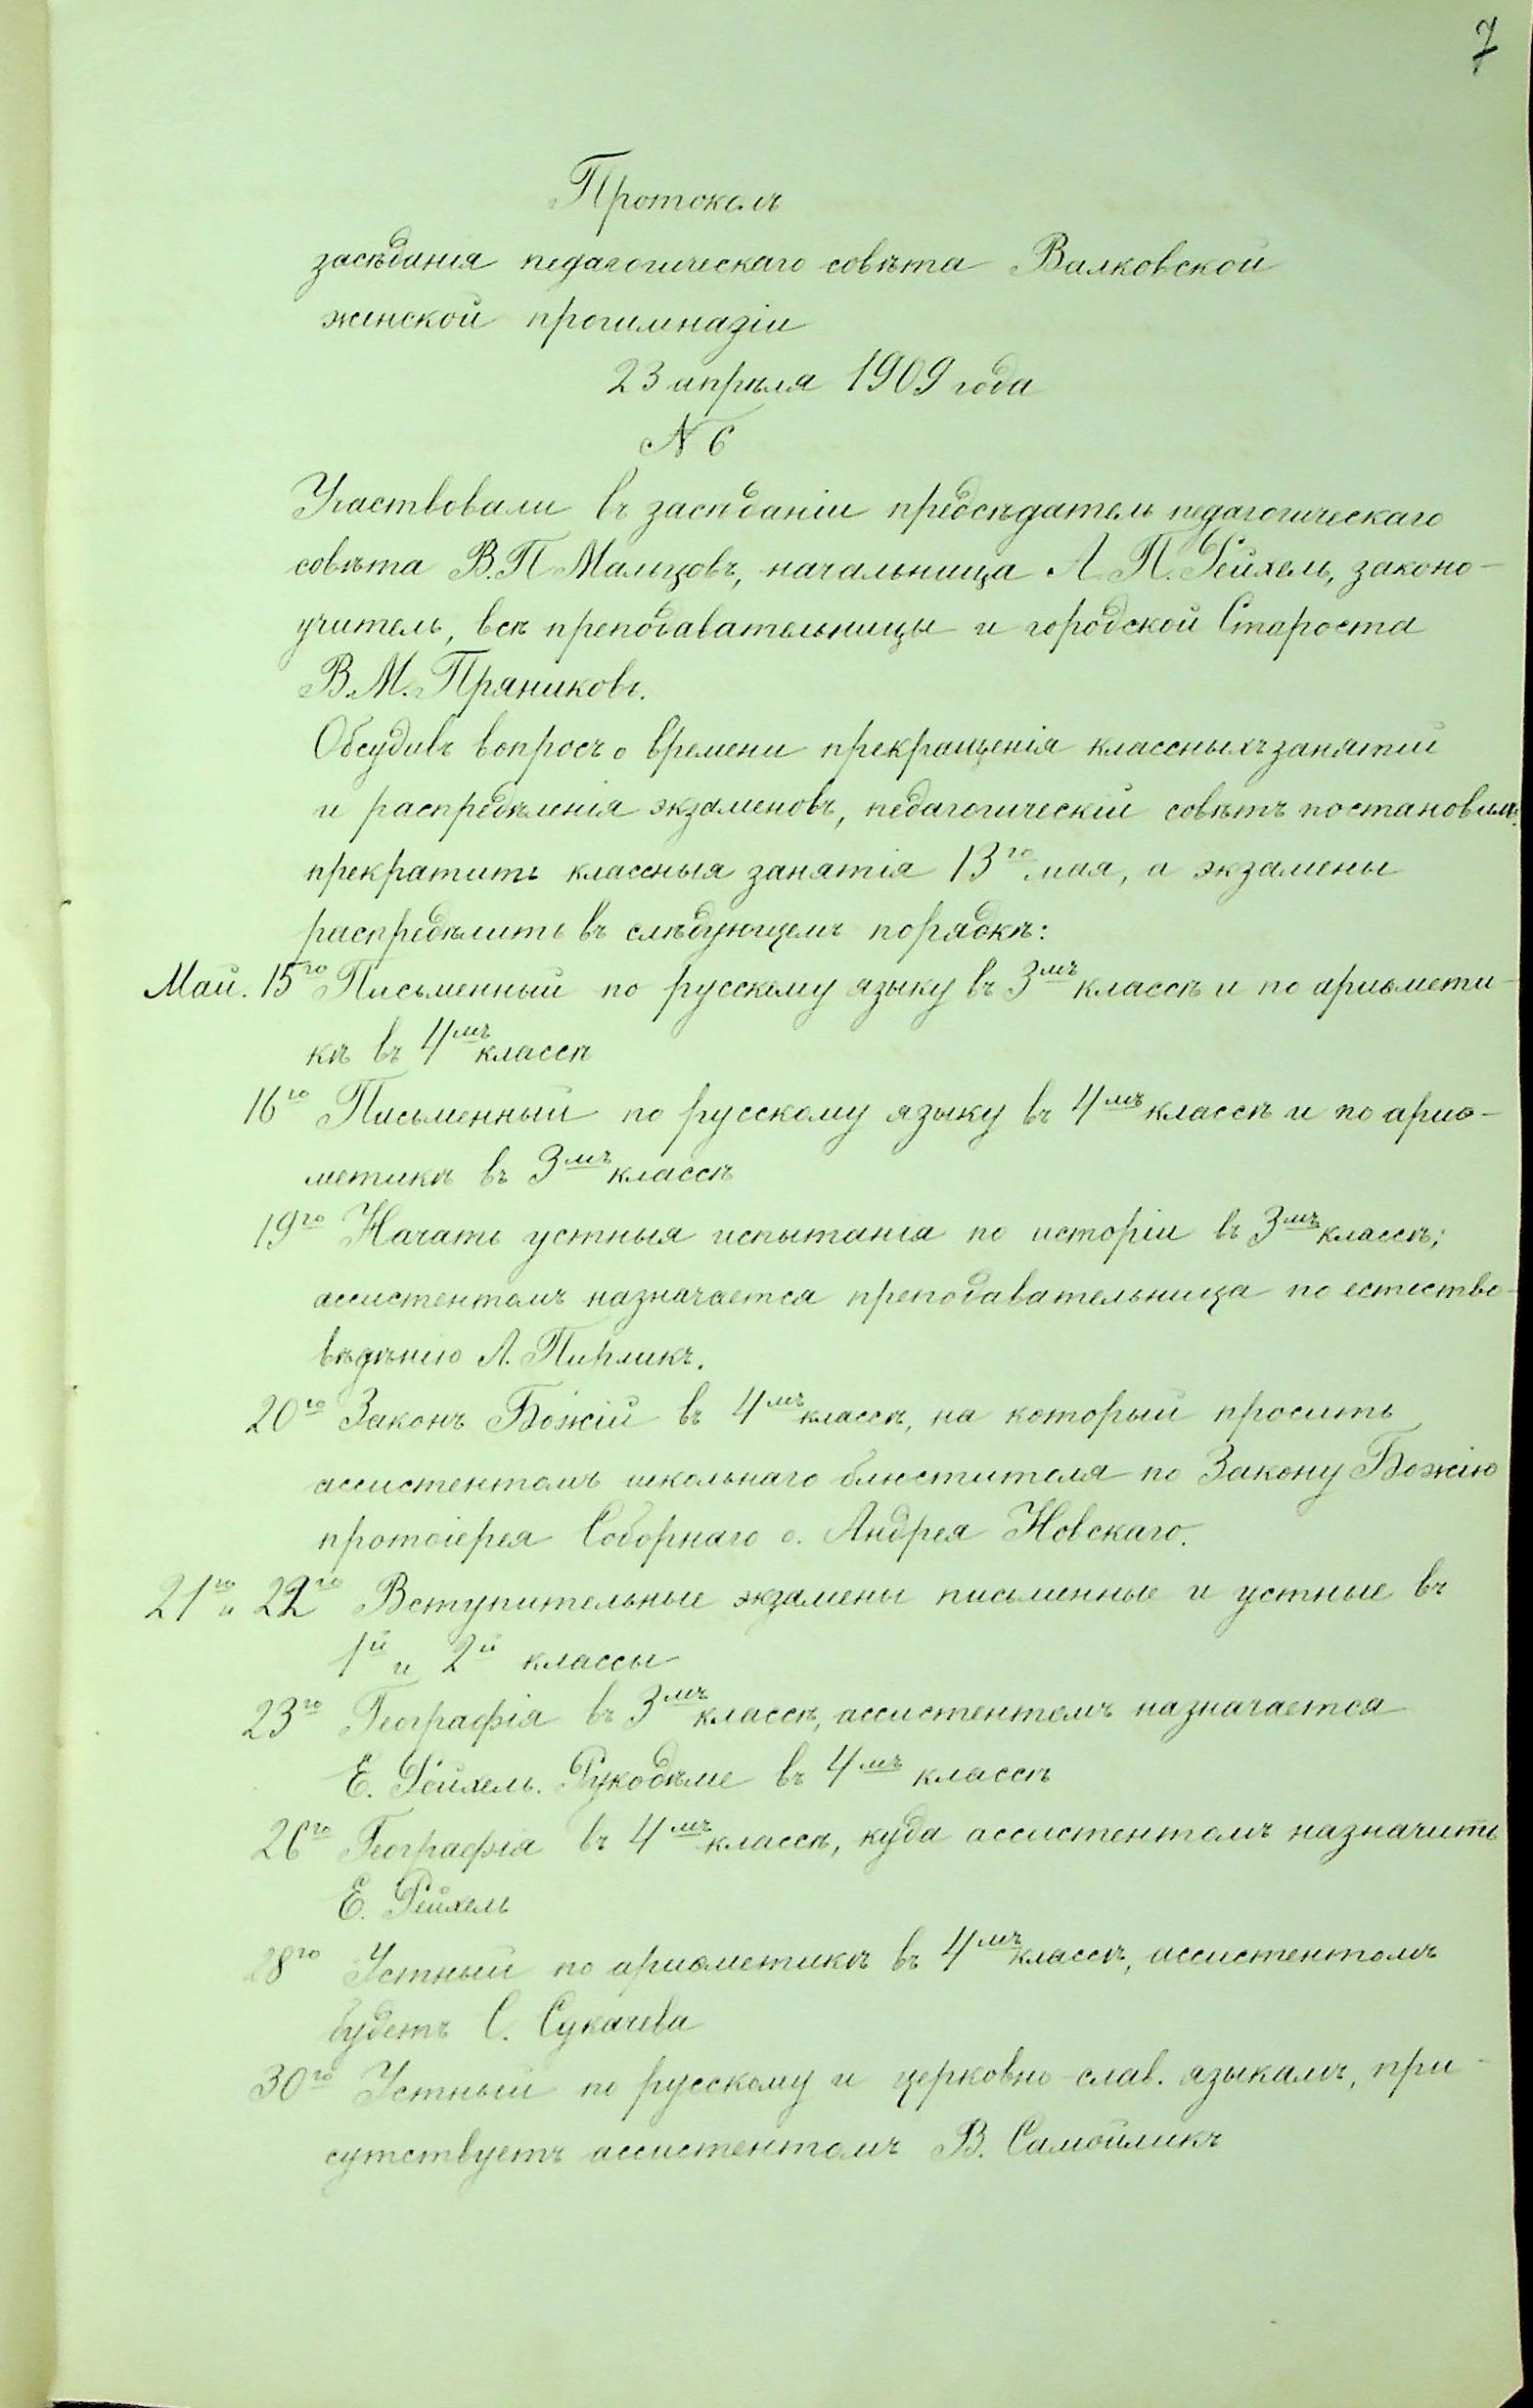 7
Протоколъ
засѣданія педагогическаго совѣта Валковской
женской прогимназіи
23 апрѣля 1909 года
N 6
Участвовали въ засѣданіи предсѣдатель педагогическаго
совѣта В.П. Мальцовъ, начальница Л. П. Рейхель, законо-
учитель, всѣ преподавательницы и городской Староста
В.М. Пряниковъ.
Обсудивъ вопросъ о времени прекращенія классныхъ занятій
и распредѣленія экзаменовъ, педагогическій совѣтъ постановилъ:
прекратить классныя занятія 13го мая, а экзамены
распредѣлить въ слѣдующемъ порядкѣ:
Май. 15го Письменный по русскому языку въ 3мъ классѣ и по ариѳмети-
кѣ въ 4мъ классѣ
16го Письменный по русскому языку въ 4мъ классѣ и по ариѳ-
метикѣ въ 3мъ классѣ
19го Начать устныя испытанія по исторіи въ 3мъ классѣ;
ассистентомъ назначается преподавательница по естество-
вѣдѣнію А. Пирликъ.
20го Законъ Божій въ 4мъ классѣ, на который просить
ассистентомъ школьнаго блюстителя по Закону Божію
протоіерея Соборнаго о. Андрея Новскаго.
21го и 22го Вступительные экзамены письменные и устные въ
1й и 2й классы
23го Географія въ 3мъ классѣ, ассистентомъ назначается
Е. Рейхель. Рукодѣліе въ 4мъ классѣ
26го Географія въ 4мъ классѣ, куда ассистентомъ назначить
Е. Рейхель
28го Устный по ариѳметикѣ въ 4мъ классѣ, ассистентомъ
будетъ С. Сукачева
30го Устный по русскому и церковно-слав. языкамъ, при-
сутствуетъ ассистентомъ В. Самойликъ